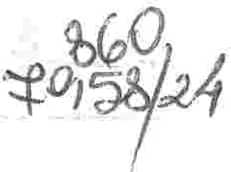 860
70,58/24